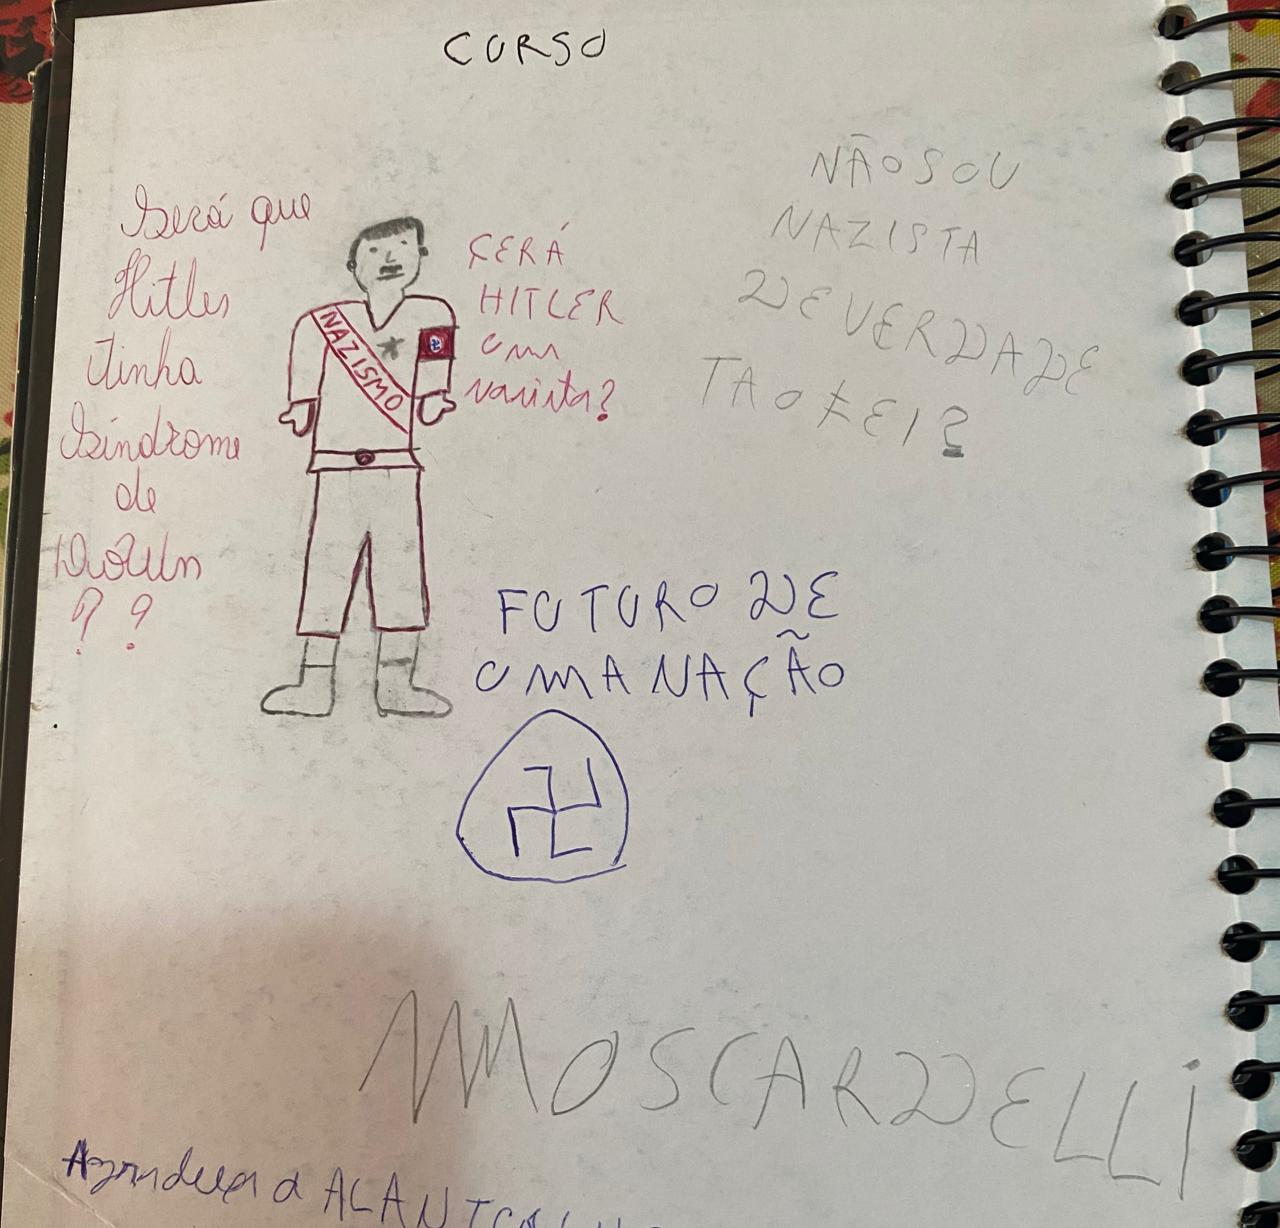 CURSO
Será que
Hitler
tinha
Síndrome
de
Down
? ?
NAZISMO
SERÁ
HITLER
um
varista?
NÃO SOU
NAZISTA
DE VERDADE
TAOKEI?
FUTURO DE
UMA NAÇÃO
MOSCARDELLI
Agradeça a